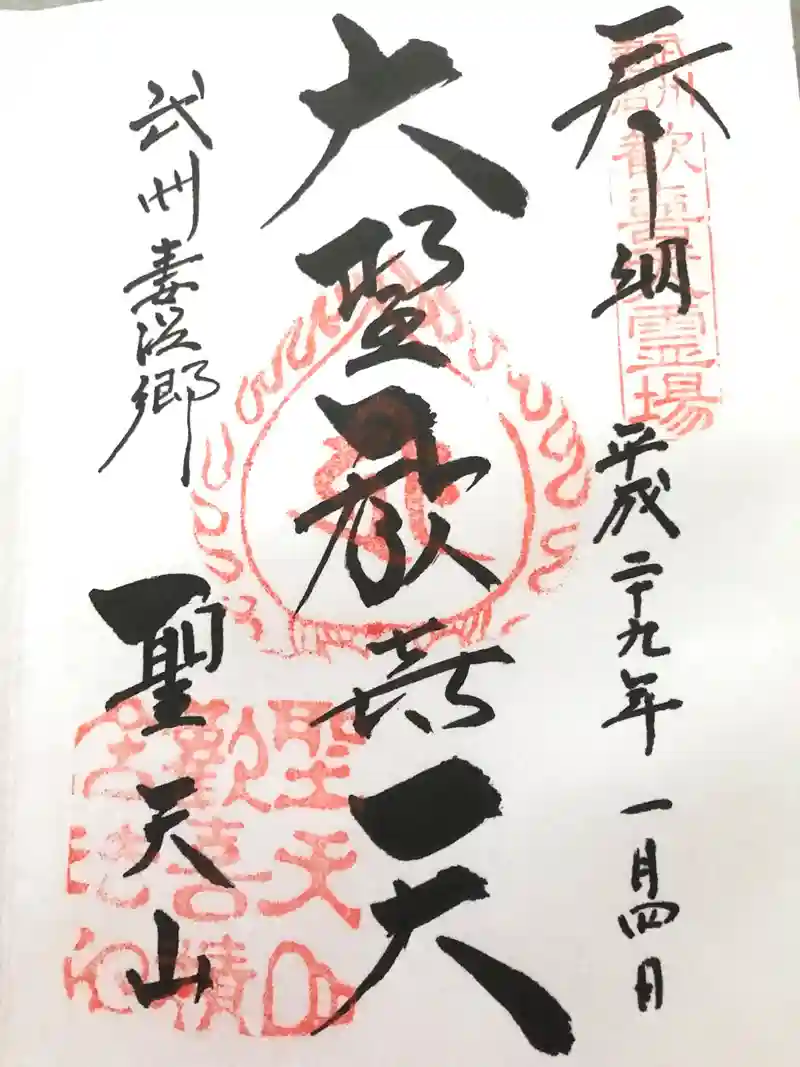 奉納
平成二十九年一月四日
武州
妻沼
歓喜天霊場
大聖歓喜天
武州妻沼郷
聖天山
聖天山
歡喜精